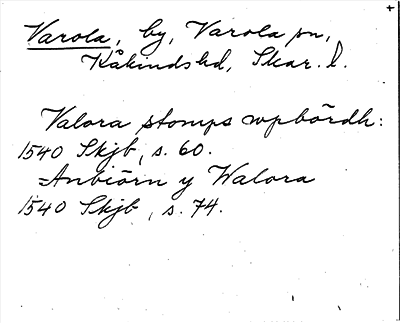 Varola, by, Varola sn,
Kåkinds hd, Skar. l.
Valora stomps wpbördh:
1540 Skjb, s. 60.
=Anbiörn y Walora
1540 Skjb, s. 74.